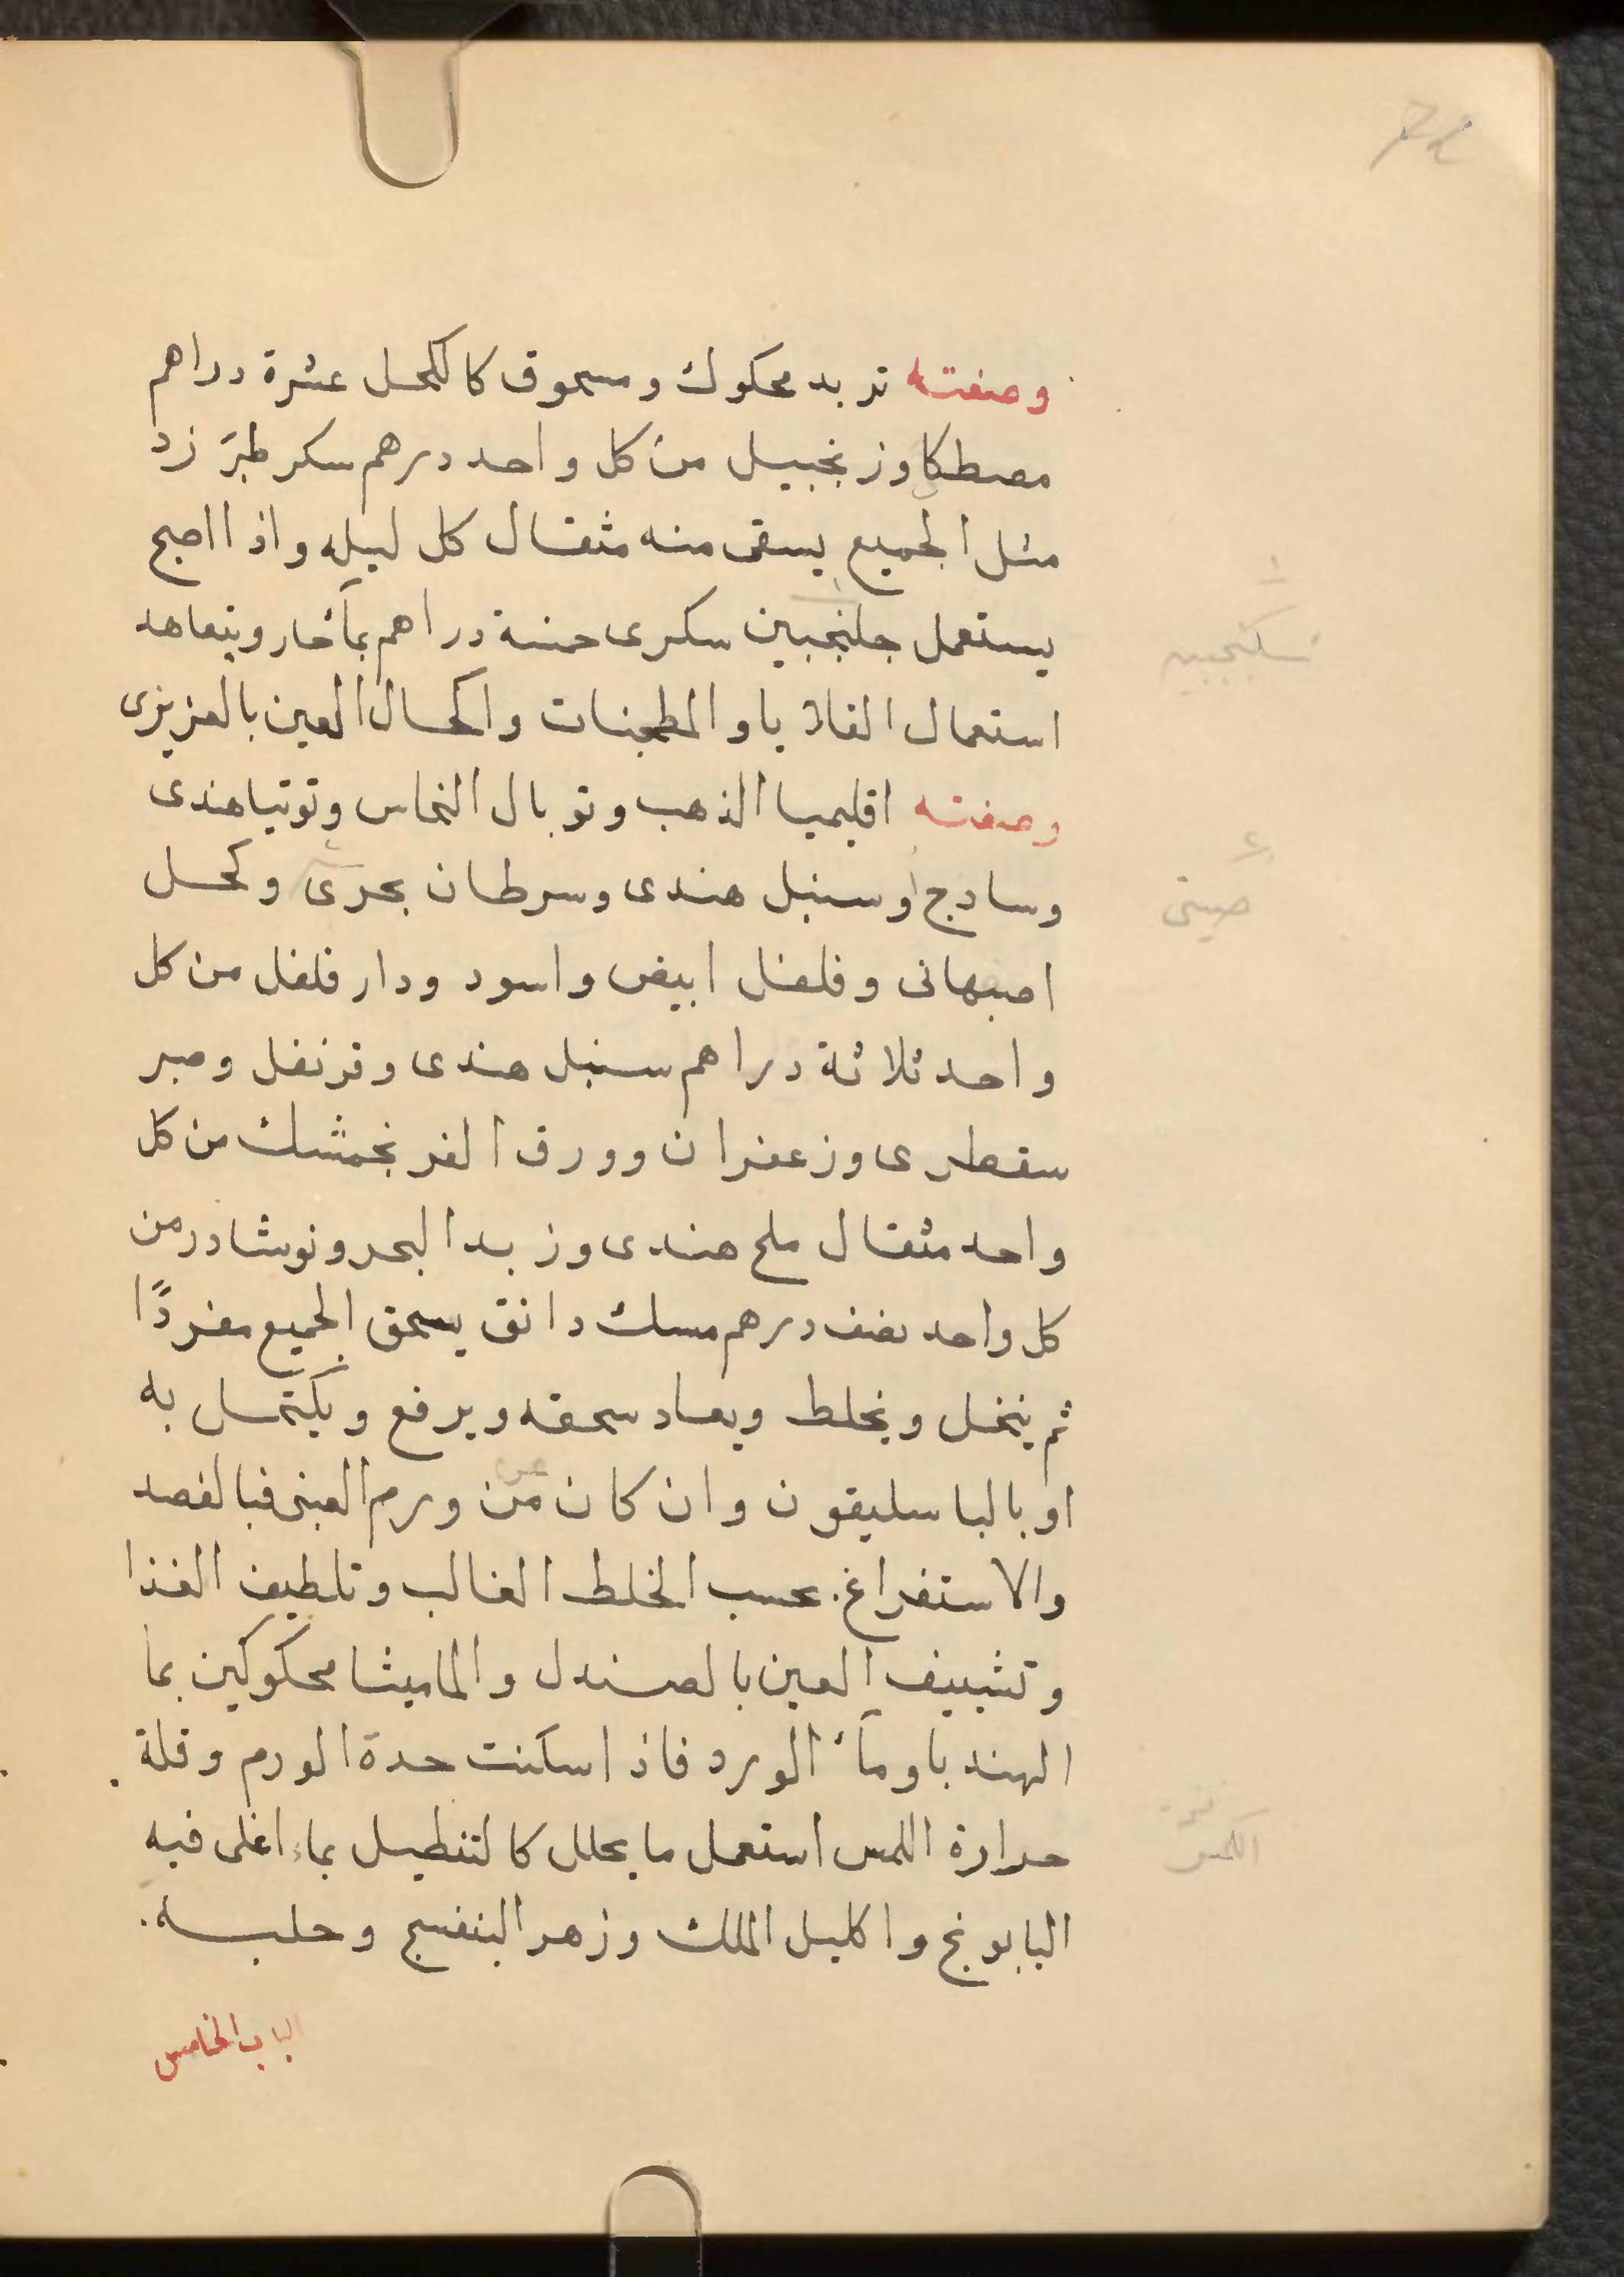 وصفته تربد محكوك ومسحوق كالكحل عشرة دراهم
مصطكا وزنجبيل من كل واحد درهم سكر طبرَ زد
مثل الجميع يسقى منه مثقال كل ليله واذا اصبح
يستعمل جلنجبين سكرى خمسة دراهم بمآء حار ويتعاهد
استعمال القلايا والمطجنات واكحال العين بالعزيزى
وصفته اقليميا الذهب وتوبال النحاس وتوتيا هندى
وسادج وسنبل هندى وسرطان بحرى وكحل
اصبهانى وفلفل ابيض واسود ودار فلفل من كل
واحد ثلاثة دراهم سنبل هندى وقرنفل وصبر
سقطرى وزعفران وورق الفرنجمشك من كل
واحد مثقال ملح هندى وزبد البحر ونوشادر من
كل واحد نصف درهم مسك دانق يسحق الجميع مفردًا
ثم ينخل ويخلط ويعاد سحقه ويرفع ويكتحل به
او بالباسليقون وان كان من ورم العينى فبالفصد
والاستفراغ بحسب الخلط الغالب وتلطيف الغذا
وتشييف العين بالصندل والماميثا محكوكين بما
الهندبا ومآء الورد فاذا سكنت حدة الورم وقلة
حرارة اللمس استعمل ما يحلل كالتنطيل بماء اغلى فيه
البابونج واكليل الملك وزهر البنفسج وحلبه
الباب الخامس
صينى
اللمس